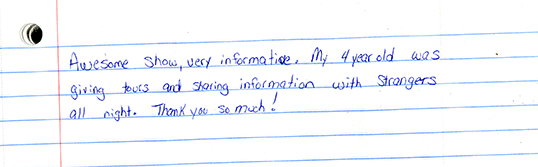 Awesome show, very informative. My 4 year old was
giving tours and sharing information with strangers
all night. Thank you so much!